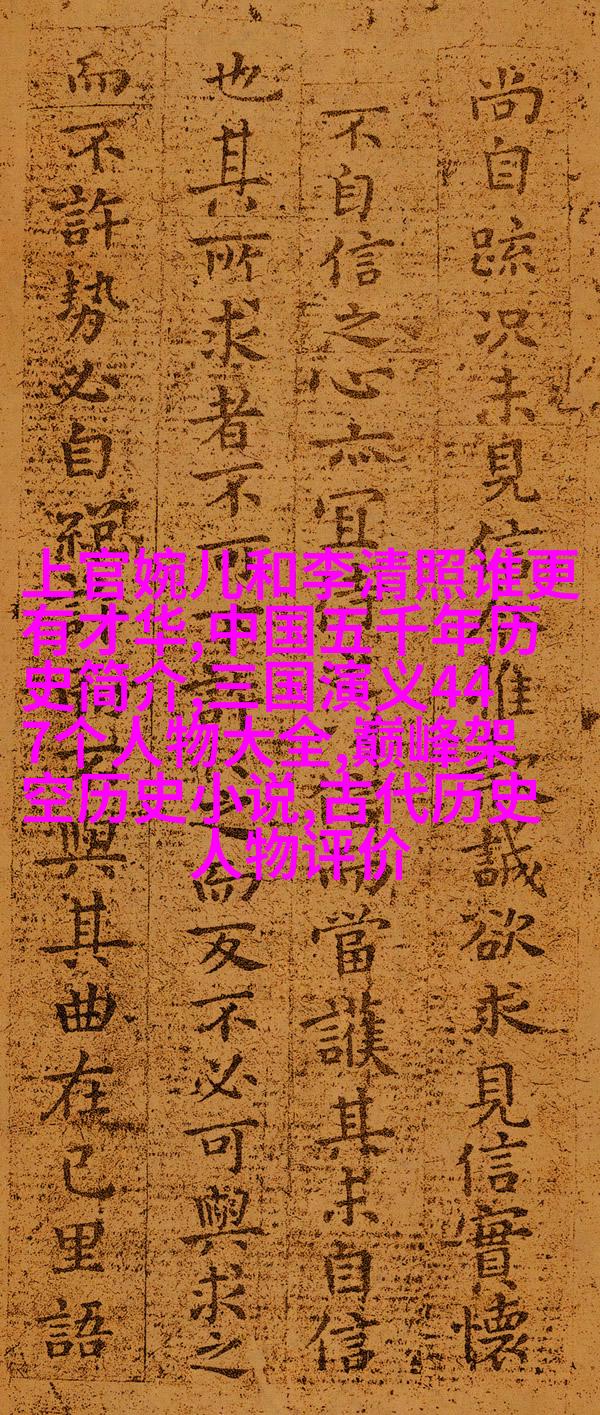 上官婉儿和李清照谁更
有才华,中国五千年历
史简介,三国演义44
7个人物大全,巅峰架
空历史小说,古代历史
人物评价
尚自踈况未見信誠欲求見信實懷
不自信之心亦宜當護其未自信
也其所求者不可而反不必可與求之
而不許勢必自與其曲在己里語